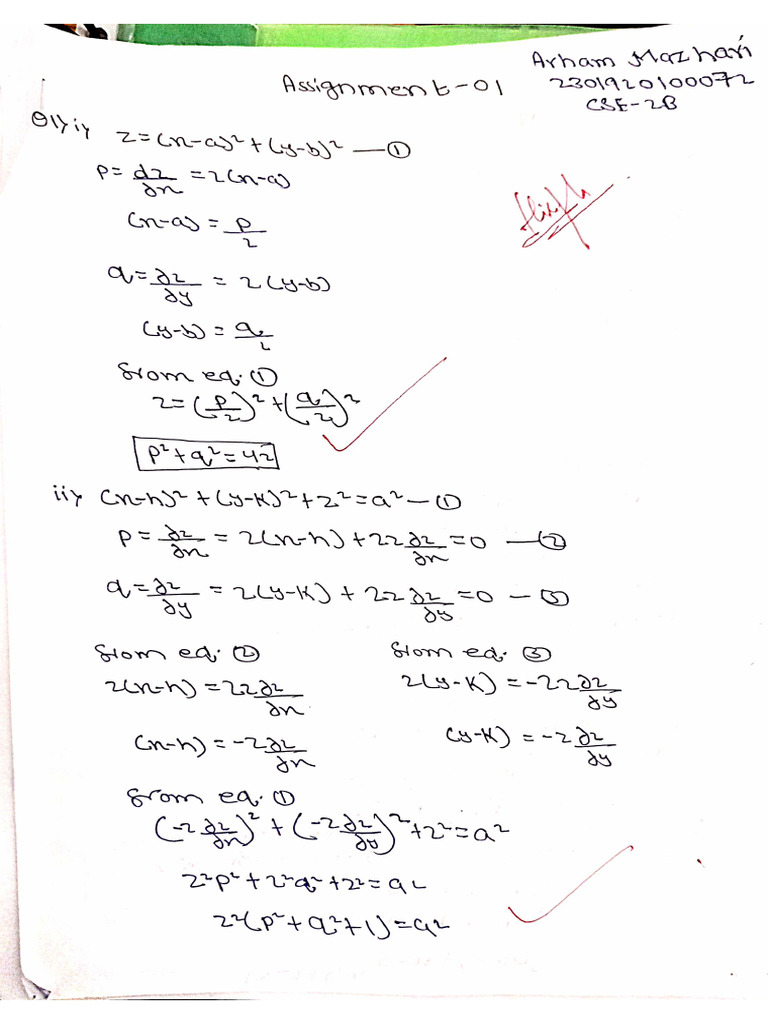 Arham Mazhari
Assignment-01
2301920100072
CSE-2B
Q1) i) z=(x-a)²+(y-b)² —①
p= dz/∂x =2(x-a)
(x-a) = p/2
q= ∂z/∂y = 2(y-b)
(y-b) = q/2
from eq. ①
z=(p/2)²+(q/2)²
p²+q²=4z
ii) (x-h)²+(y-k)²+z²=a² —①
p= ∂z/∂x = 2(x-h)+2z ∂z/∂x =0 —②
q= ∂z/∂y = 2(y-k)+2z ∂z/∂y =0 —③
from eq. ②
2(x-h) = 2z ∂z/∂x
(x-h) = -z ∂z/∂x
from eq. ③
2(y-k) = -2z ∂z/∂y
(y-k) = -z ∂z/∂y
from eq. ①
(-z ∂z/∂x)² + (-z ∂z/∂y)² +z²=a²
z²p²+z²q²+z²=a²
z²(p²+q²+1)=a²